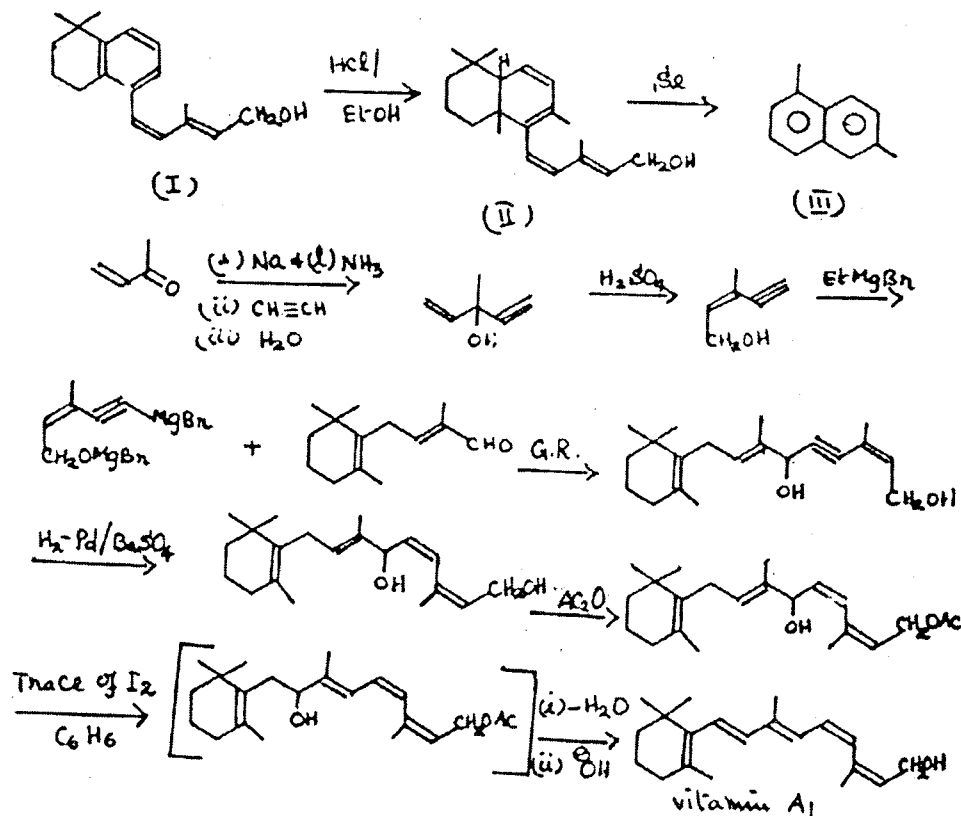 HCl/
Et-OH
Se
CH2OH
H
CH2OH
(I)
(II)
(III)
O
(i) Na + (l) NH3
(ii) CH≡CH
(iii) H2O
OH
H2SO4
CH2OH
EtMgBr
MgBr
CH2OMgBr
+
CHO
G.R.
OH
CH2OH
H2-Pd/BaSO4
OH
CH2OH
AC2O
OH
CH2OAC
Trace of I2
C6H6
OH
CH2OAC
(i) -H2O
(ii) ⊖OH
CH2OH
vitamin A1